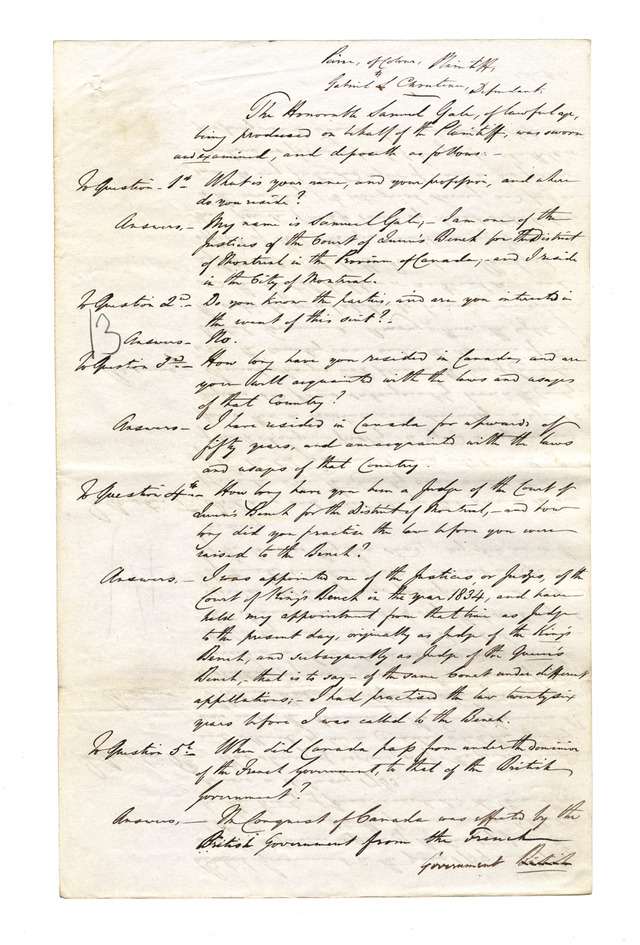 Pierre, of Colour, Plaintiff,
Gabriel S Chouteau, Defendant.
The Honorable Samuel Gale, of lawful age,
being produced on behalf of the Plaintiff, was sworn
and examined, and deposeth as follows:-
To Question 1st What is your name, and your profession, and where
do you reside?
Answers,- My name is Samuel Gale,- I am one of the
Justices of the Court of Queen's Bench for the District
of Montreal in the Province of Canada,- and I reside
in the City of Montreal.
To Question 2d- Do you know the parties, and are you interested in
the event of this suit?-
13
Answers- No.
To Question 3d- How long have you resided in Canada, and are
you well acquainted with the laws and usages
of that Country?
Answers- I have resided in Canada for upwards of
fifty years, and am acquainted with the laws
and usages of that Country.
To Question 4th- How long have you been a Judge of the Court of
Queen's Bench for the District of Montreal,- and how
long did you practise the law before you were
raised to the Bench?
Answers,- I was appointed one of the Justices, or Judges, of the
Court of King's Bench in the year 1834, and have
held my appointment from that time as Judge
to the present day, originally as Judge of the King's
Bench, and subsequently as Judge of the Queen's
Bench,- that is to say- of the same Court under different
appellations;- I had practised the law twenty six
years before I was called to the Bench.
To Question 5th- When did Canada pass from under the dominion
of the French Government, to that of the British
Government?
Answers,- The Conquest of Canada was effected by the
British Government from the French
Government British